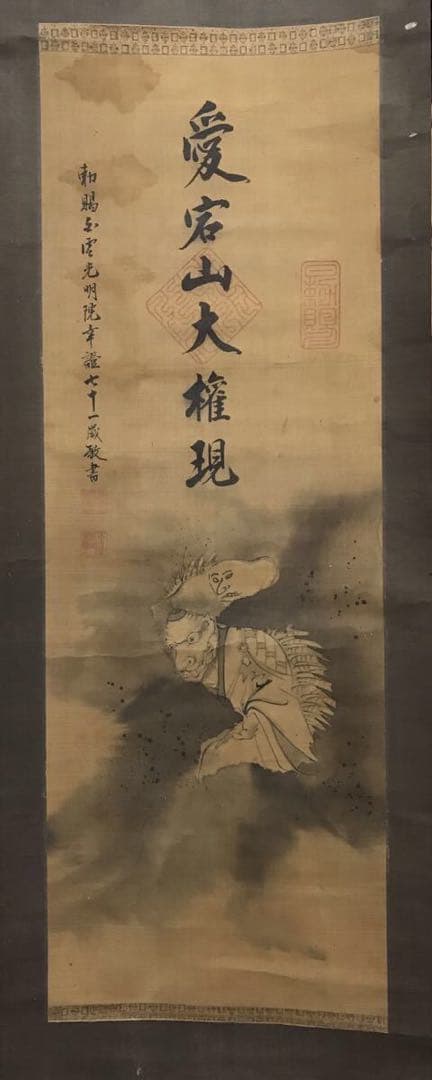 愛宕山大権現
勅賜白雲光明院幸證七十一歳敬書